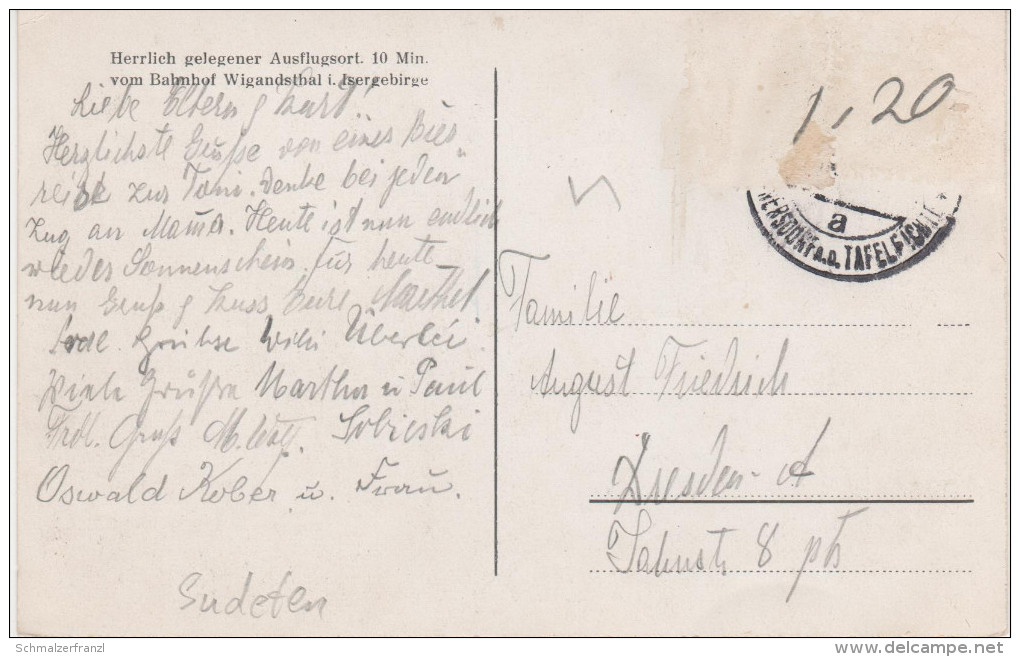 Herrlich gelegener Ausflugsort. 10 Min.
vom Bahnhof Wigandsthal i. Isergebirge
Liebe Eltern & Kurt!
Herzlichste Grüße von einer Bier-
reise zur Toni. Denke bei jeden
Zug an Mama. Heute ist nun endlich
wieder Sonnenschein. Für heute
nun Gruß & Kuss Eure
Grüße Willi
Viele Grüße Martha u Paul
Frdl. Gruß M. Sobieski
Oswald Kober u. Frau.
Sudeten
1,20
a
ERSDORF a.d. TAFELFICHTE
Familie
August Friedrich
Dresden-A
Jahnstr 8 pt
Schmalzerfranzl
delcampe.net